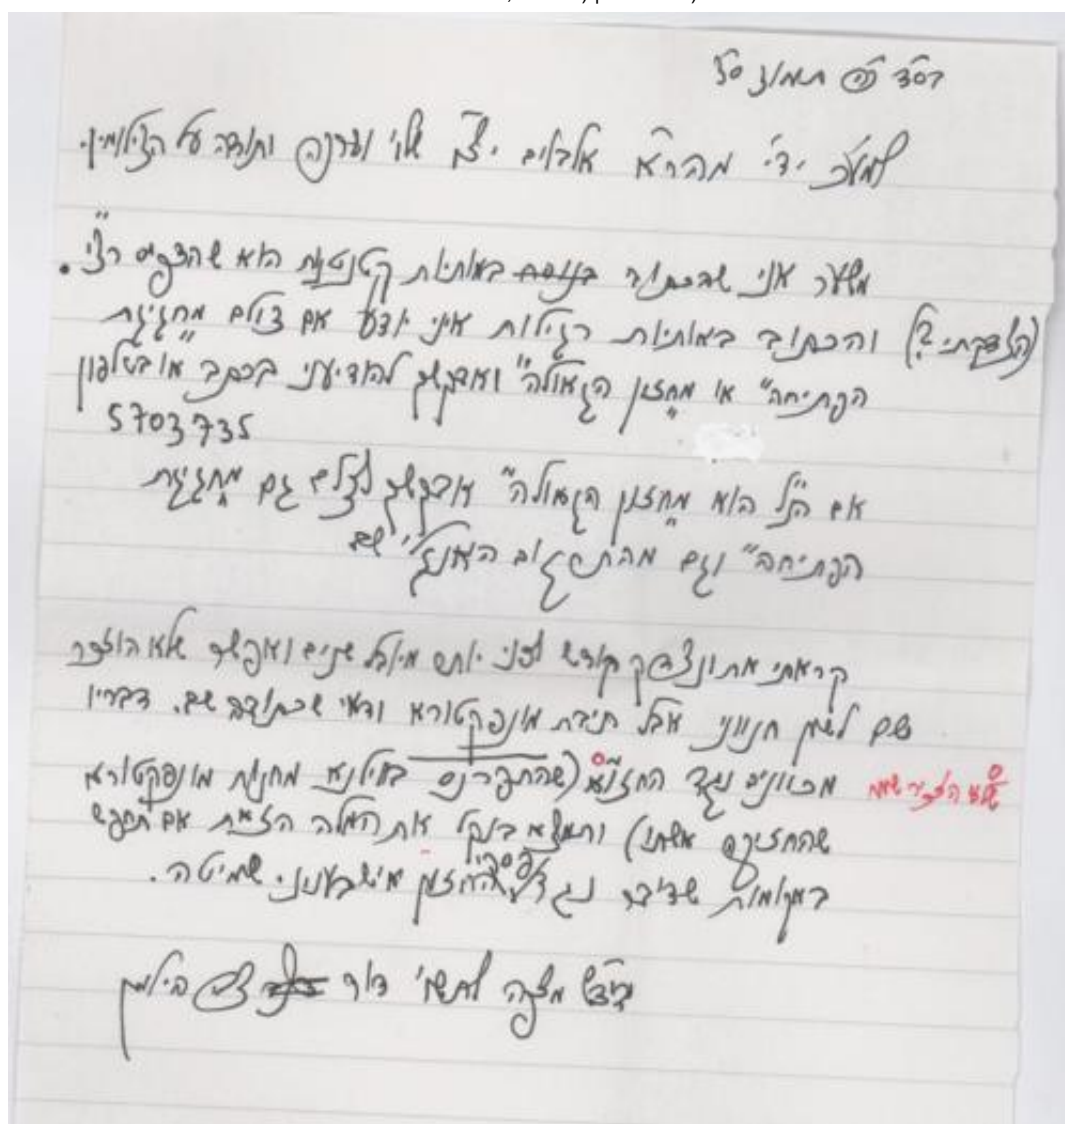 בס"ד תמוז ס"ד
למע"כ ידי' מהר"א אלבוים יצ"ו שלו' וערכה ותודה על הצילומין.
משער אני שהכתוב באותיות קטנטנות הוא שהדפיס רצ"י.
(הצדקתי?) והכתוב באותיות רגילות איני יודע אם צולם מחגיגת
הפתיחה" או מחזון הגאולה" ואבקשך להודיעני בכתב או בטלפון
5703735
אם הנ"ל הוא מחזון הגאולה" אבקשך לצלם גם מחגיגת
הפתיחה" וגם מהתרגום האנגלי שם
קראתי את ונצדק קודש לפני יותר מיובל שנים ואפשר שלא הוזכר
שם לשון חנווני אבל תיבת מונפקטורא ודאי שכתובה שם. דבריו
מכוונים נגד החזו"א (שהתפרנס בווילנא מחנות מונפקטורא
שלא הזכיר שמו
שהחזיקה אשתו) ותמצא בנקל את המלה הזאת אם תחפש
במקומות שדיבר נגד פסקי החזון איש בעניני שמיטה.
מצפה לתשו' דוד צבי הילמן